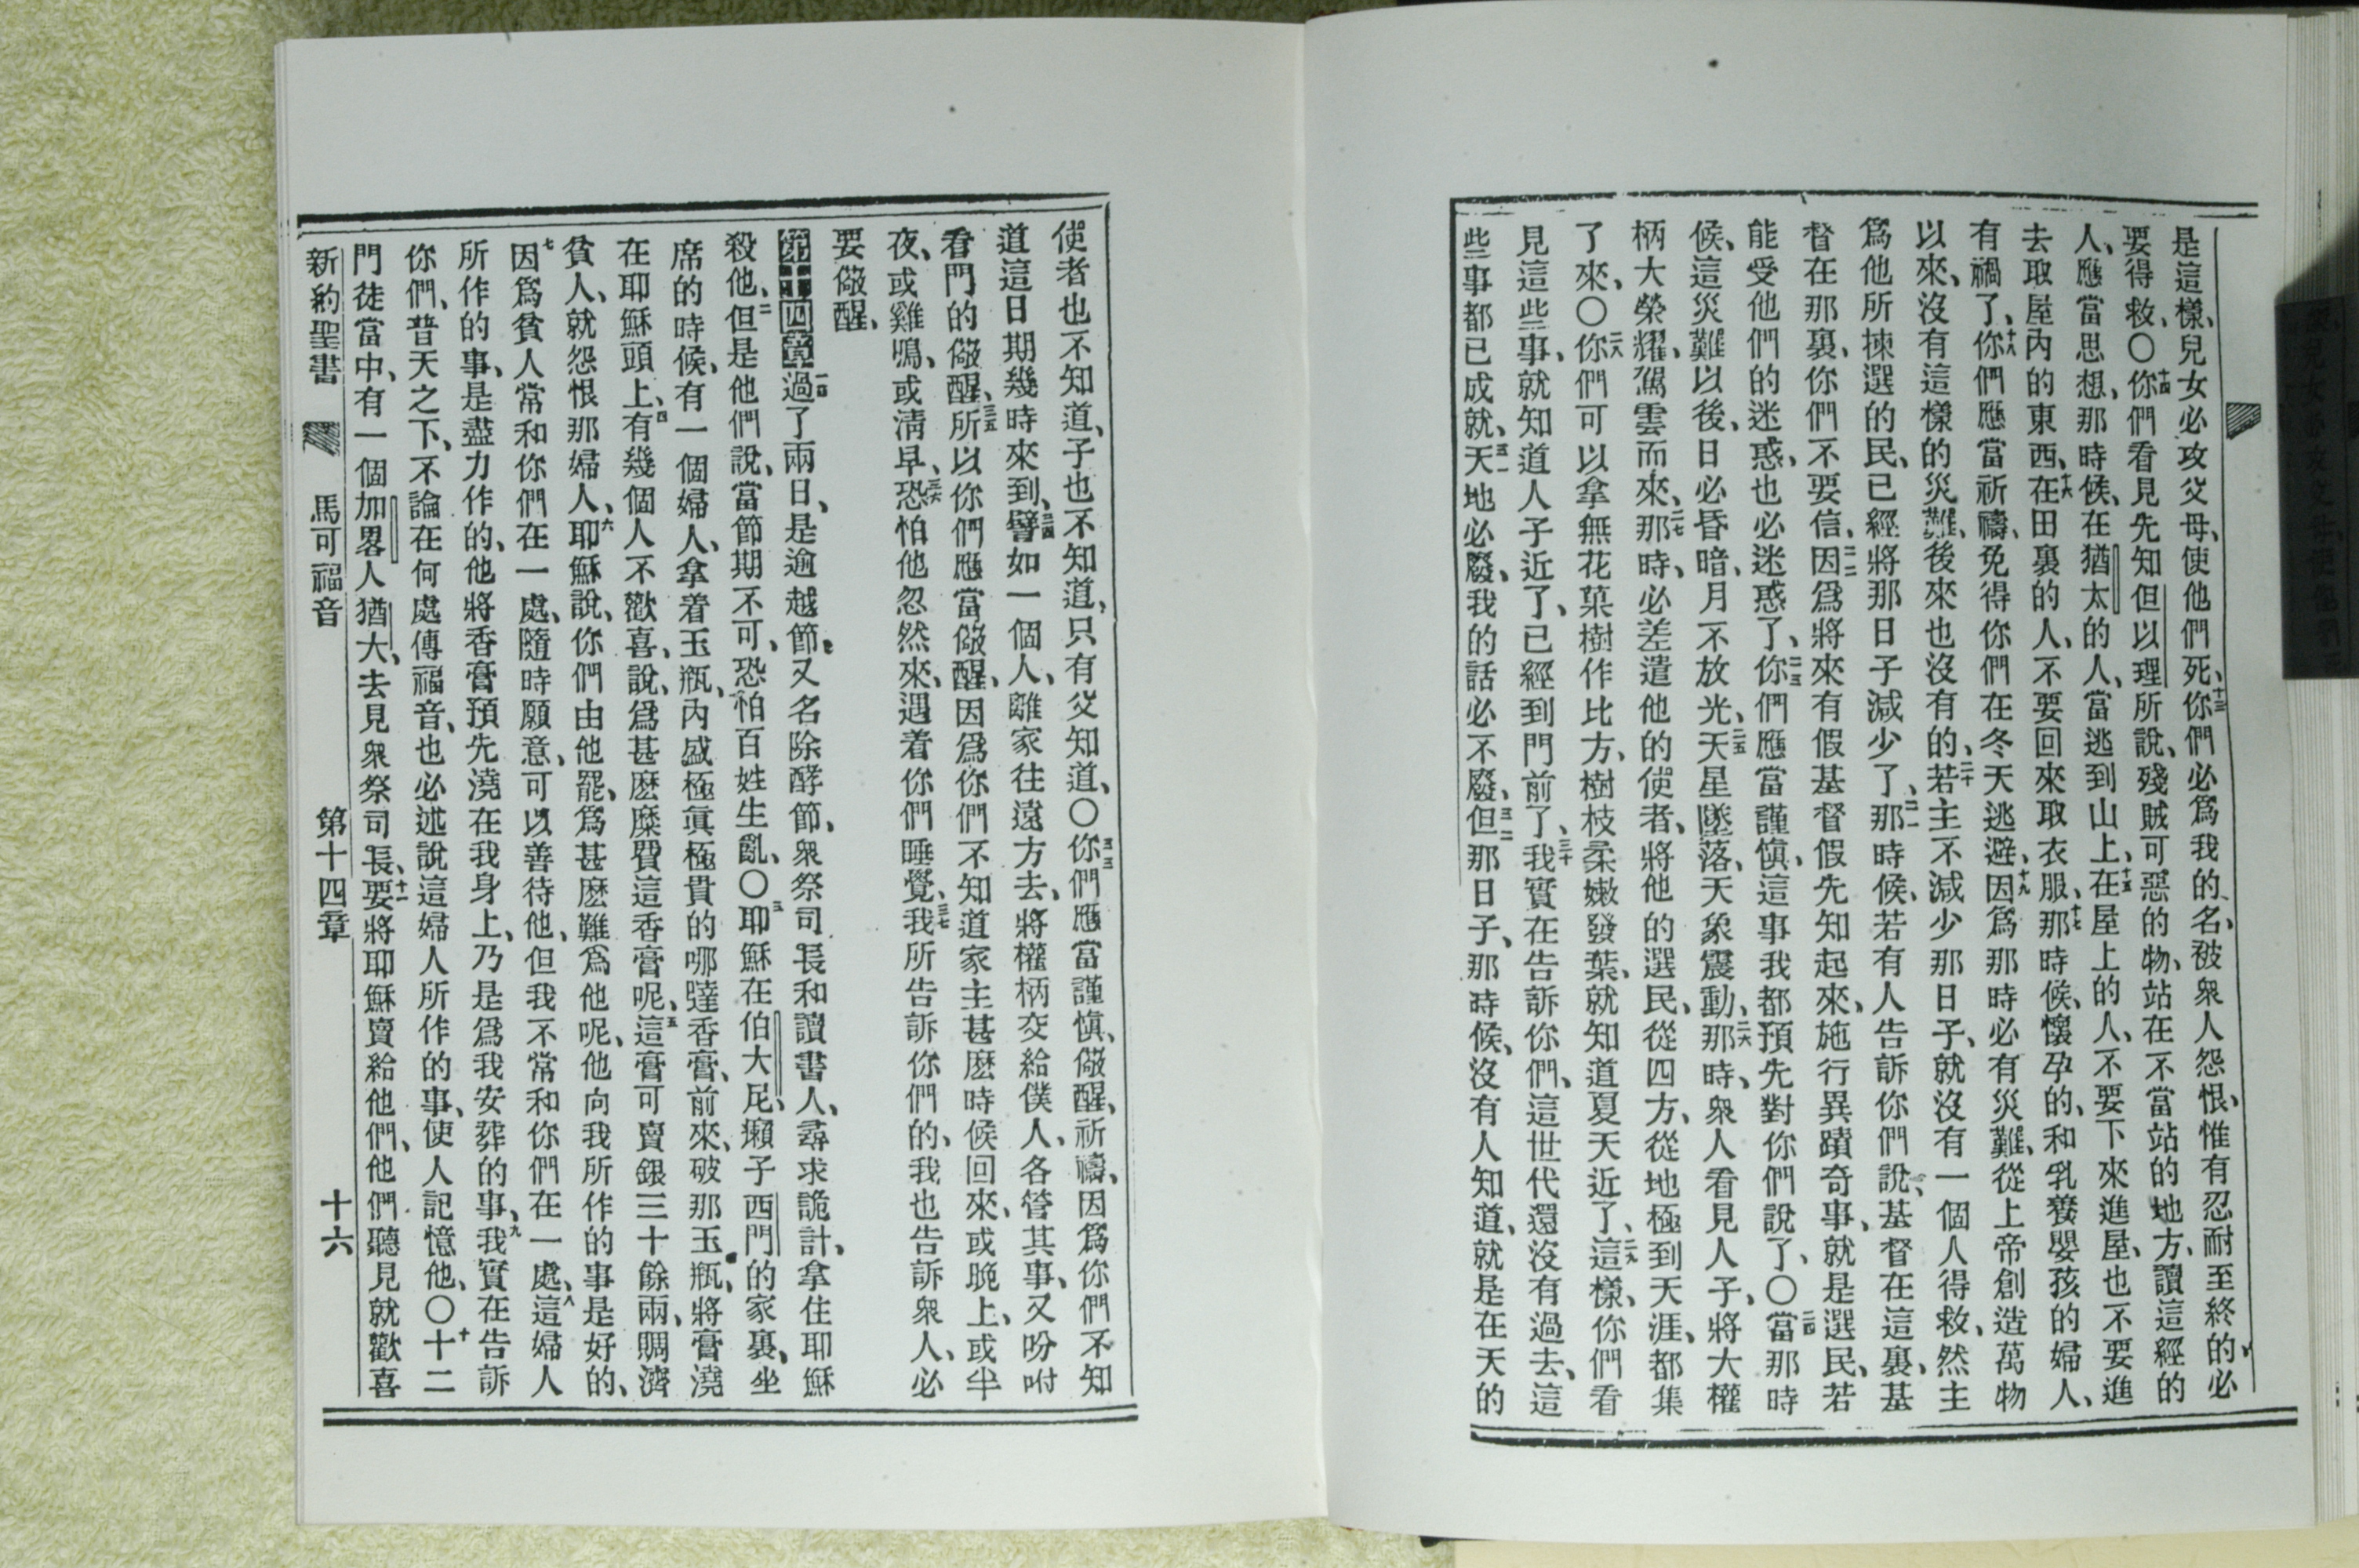 是這樣、兒女必攻父母、使他們死、十三你們必爲我的名、被衆人怨恨、惟有忍耐至終的、必
要得救、〇十四你們看見先知但以理所說、殘賊可惡的物、站在不當站的地方、讀這經的
人、應當思想、那時候、在猶太的人、當逃到山上、十五在屋上的人、不要下來進屋、也不要進
去取屋內的東西、十六在田裏的人、不要回來取衣服、十七那時候、懷孕的、和乳養嬰孩的婦人、
有禍了、十八你們應當祈禱、免得你們在冬天逃避、十九因爲那時必有災難、從上帝創造萬物
以來、沒有這樣的災難、後來也沒有的、二十若主不減少那日子、就沒有一個人得救、然主
爲他所揀選的民、已經將那日子減少了、二一那時候、若有人告訴你們說、基督在這裏、基
督在那裏、你們不要信、二二因爲將來有假基督假先知起來、施行異蹟奇事、就是選民、若
能受他們的迷惑、也必迷惑了、二三你們應當謹愼、這事我都預先對你們說了、〇二四當那時
候、這災難以後、日必昏暗、月不放光、二五天星墜落、天象震動、二六那時、衆人看見人子、將大權
柄大榮耀、駕雲而來、二七那時、必差遣他的使者、將他的選民、從四方、從地極到天涯、都集
了來、〇二八你們可以拿無花菓樹作比方、樹枝柔嫩發葉、就知道夏天近了、二九這樣、你們看
見這些事、就知道人子近了、已經到門前了、三十我實在告訴你們、這世代還沒有過去、這
些事都已成就、三一天地必廢、我的話必不廢、三二但那日子、那時候、沒有人知道、就是在天的
使者也不知道、子也不知道、只有父知道、〇三三你們應當謹愼、儆醒、祈禱、因爲你們不知
道這日期幾時來到、三四譬如一個人、離家往遠方去、將權柄交給僕人、各管其事、又吩咐
看門的儆醒、三五所以你們應當儆醒、因爲你們不知道家主甚麽時候回來、或晚上、或半
夜、或雞鳴、或淸早、三六恐怕他忽然來、遇着你們睡覺、三七我所告訴你們的、我也告訴衆人、必
要儆醒、
第十四章一過了兩日、是逾越節、又名除酵節、衆祭司長和讀書人、尋求詭計、拿住耶穌
殺他、二但是他們說、當節期不可、恐怕百姓生亂、〇三耶穌在伯大尼、癩子西門的家裏、坐
席的時候、有一個婦人、拿着玉瓶、內盛極眞極貴的哪噠香膏、前來、破那玉瓶、將膏澆
在耶穌頭上、四有幾個人不歡喜、說、爲甚麽糜費這香膏呢、五這膏可賣銀三十餘兩、賙濟
貧人、就怨恨那婦人、六耶穌說、你們由他罷、爲甚麽難爲他呢、他向我所作的事是好的、
七因爲貧人常和你們在一處、隨時願意、可以善待他、但我不常和你們在一處、八這婦人
所作的事、是盡力作的、他將香膏預先澆在我身上、乃是爲我安葬的事、九我實在告訴
你們、普天之下、不論在何處傳福音、也必述說這婦人所作的事、使人記憶他、〇十十二
門徒當中、有一個加畧人猶大、去見衆祭司長、十一要將耶穌賣給他們、他們聽見就歡喜
新約聖書 馬可福音 第十四章 十六